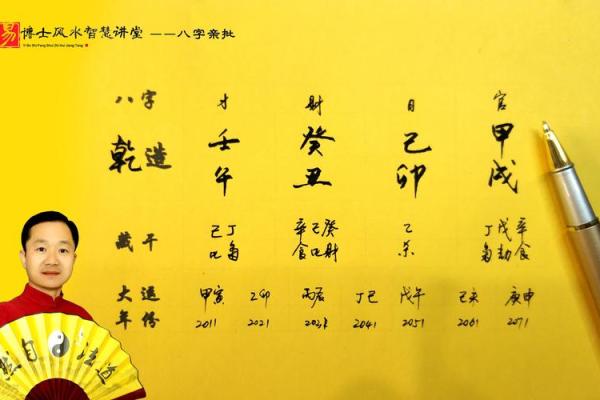 易 博士风水智慧讲堂 ——八字亲批
Yi Bo Shi Feng Shui Zhi Hui Jiang Tang
八字 才 财 日 官
乾造 壬 癸 己 甲
午 丑 卯 戌
藏干 己丁 辛己癸 乙 丁戊辛
比枭 食比财 杀 枭劫食
大运 甲寅 乙卯 丙辰 丁巳 戊午 己未 庚申
年份 2011 2021 2031 2041 2051 2061 2071
然自 法道